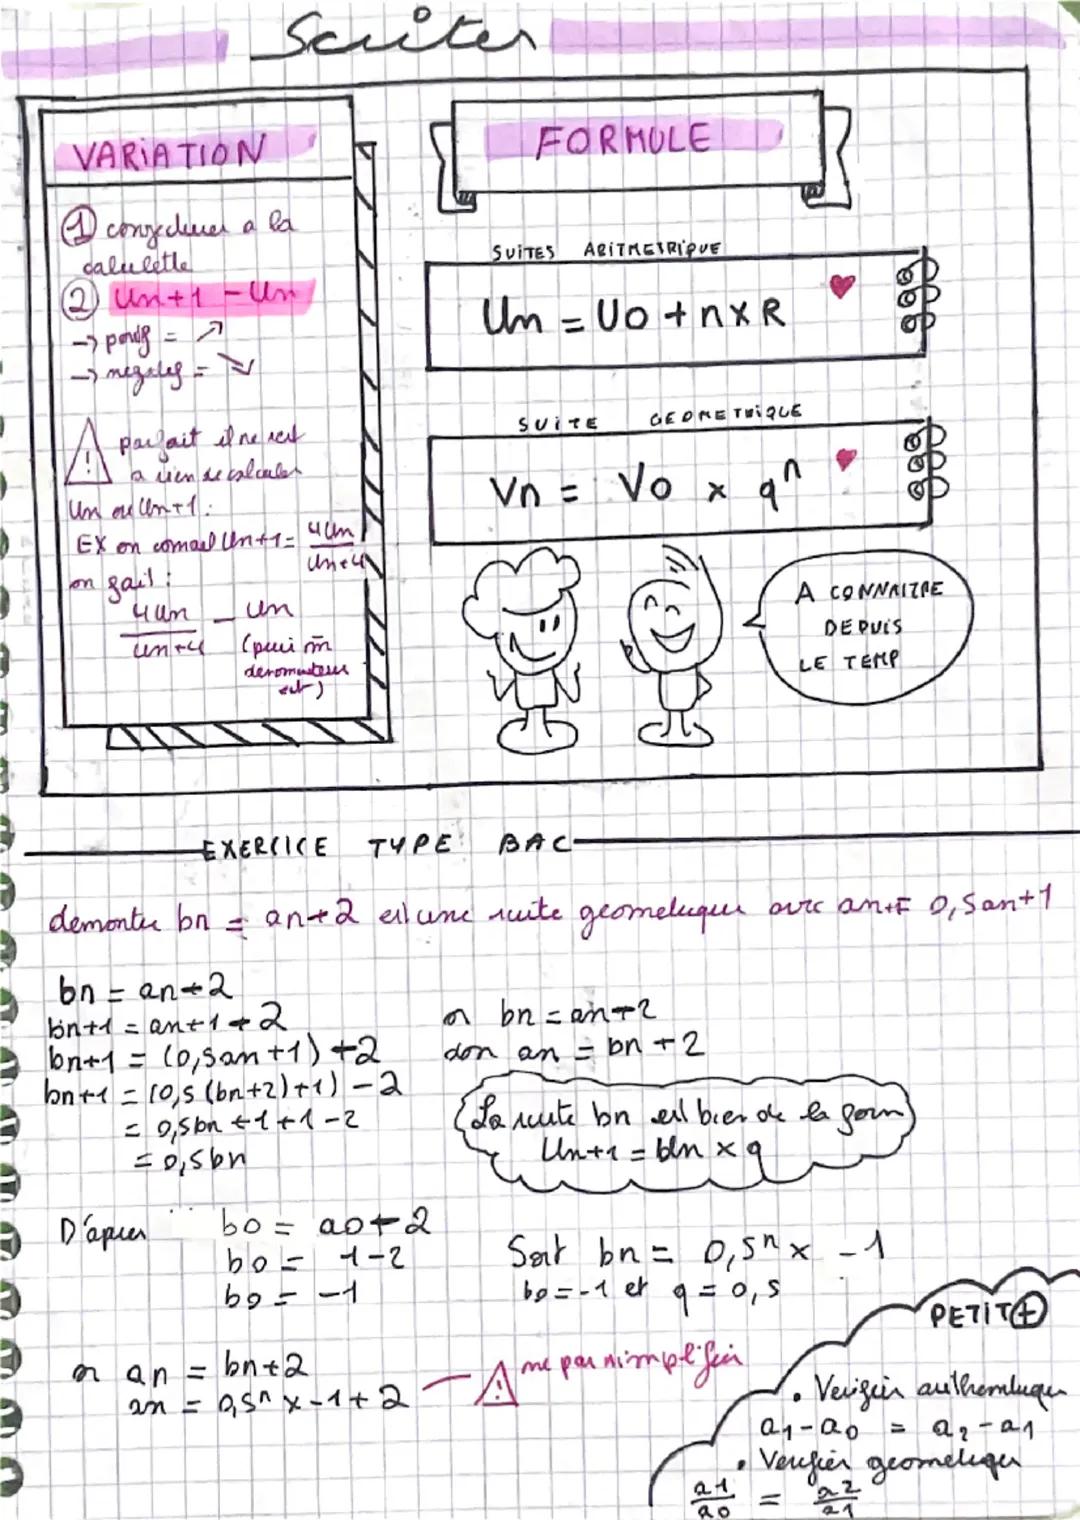 Suites
VARIATION
FORMULE
① conjecturer a la
calulette
② Un+1 - Un
→ positif = ↗
→ negatif = ↘
parfait il ne sert
a rien de calculer
Un ou Un+1 :
EX on connait Un+1 = 4Un / Un+4
on fait :
4un / un+4 - Un
(puis m̄
denominateur
ect)
SUITES ARITMETRIQUE
Un = U0 + n x R
SUITE GEOMETRIQUE
Vn = V0 x qⁿ
A CONNAITRE
DEPUIS
LE TEMP
EXERCICE TYPE BAC
demontre bn = an+2 est une suite geometrique avec an+1= 0,5an+1
bn = an+2
bn+1 = an+1+2
bn+1 = (0,5an+1)+2
bn+1 = (0,5(bn+2)+1)-2
= 0,5bn+1+1-2
= 0,5bn
or bn = an+2
don an = bn+2
La suite bn est bien de la form
Un+1 = Un x q
D'apres b0 = a0+2
b0 = 1-2
b0 = -1
Soit bn = 0,5ⁿ x -1
b0=-1 et q = 0,5
or an = bn+2
an = 0,5ⁿ x -1+2
ne pas simplifier
PETIT +
• Verifier arithemetique
a1-a0 = a2-a1
• Verifier geometrique
a1/a0 = a2/a1